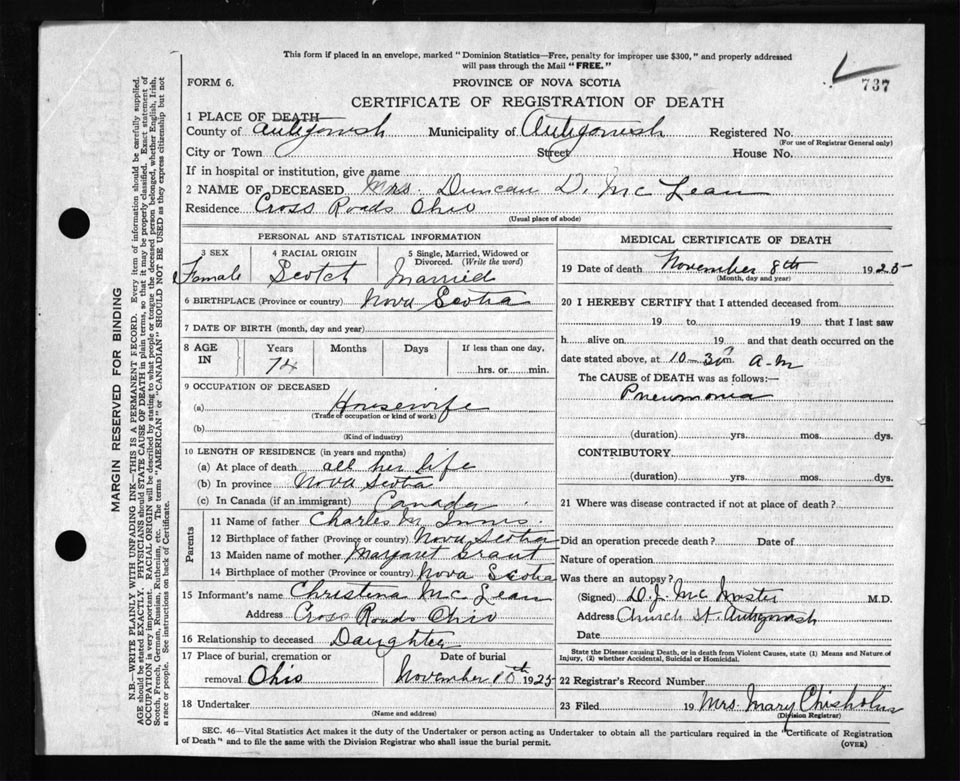 This form if placed in an envelope, marked "Dominion Statistics—Free, penalty for improper use $300," and properly addressed
will pass through the Mail "FREE."
737
FORM 6.
PROVINCE OF NOVA SCOTIA
CERTIFICATE OF REGISTRATION OF DEATH
1 PLACE OF DEATH
County of Antigonish Municipality of Antigonish Registered No.
(For use of Registrar General only)
City or Town Street House No.
If in hospital or institution, give name
2 NAME OF DECEASED Mrs. Duncan D. McLean
Residence Cross Roads Ohio
(Usual place of abode)
PERSONAL AND STATISTICAL INFORMATION
3 SEX 4 RACIAL ORIGIN 5 Single, Married, Widowed or
Divorced. (Write the word)
Famale Scotch Married
6 BIRTHPLACE (Province or country) Nova Scotia
7 DATE OF BIRTH (month, day and year)
8 AGE IN Years Months Days If less than one day,
74 hrs. or min.
9 OCCUPATION OF DECEASED
(a) Housewife
(Trade or occupation or kind of work)
(b)
(Kind of industry)
10 LENGTH OF RESIDENCE (in years and months)
(a) At place of death all her life
(b) In province Nova Scotia
(c) In Canada (if an immigrant) Canada
Parents
11 Name of father Charles Mc Innis
12 Birthplace of father (Province or country) Nova Scotia
13 Maiden name of mother Margaret Grant
14 Birthplace of mother (Province or country) Nova Scotia
15 Informant's name Christena McLean
Address Cross Roads Ohio
16 Relationship to deceased Daughter
17 Place of burial, cremation or Date of burial
removal Ohio November 10th 1925
18 Undertaker
(Name and address)
MEDICAL CERTIFICATE OF DEATH
19 Date of death November 8th 1925
(Month, day and year)
20 I HEREBY CERTIFY that I attended deceased from
19 to 19 that I last saw
h alive on 19 and that death occurred on the
date stated above, at 10-30 m. a-m
The CAUSE of DEATH was as follows:—
Pneumonia
(duration) yrs. mos. dys.
CONTRIBUTORY
(duration) yrs. mos. dys.
21 Where was disease contracted if not at place of death?
Did an operation precede death? Date of
Nature of operation
Was there an autopsy?
(Signed) D. J. McMaster M.D.
Address Church St. Antigonish
Date
State the Disease causing Death, or in death from Violent Causes, state (1) Means and Nature of
Injury, (2) whether Accidental, Suicidal or Homicidal.
22 Registrar's Record Number
23 Filed 19 Mrs. Mary Chisholm
(Division Registrar)
SEC. 46—Vital Statistics Act makes it the duty of the Undertaker or person acting as Undertaker to obtain all the particulars required in the "Certificate of Registration
of Death" and to file the same with the Division Registrar who shall issue the burial permit.
(OVER)
MARGIN RESERVED FOR BINDING
N.B.—WRITE PLAINLY WITH UNFADING INK—THIS IS A PERMANENT RECORD. Every item of information should be carefully supplied.
AGE should be stated EXACTLY. PHYSICIANS should STATE CAUSE OF DEATH in plain terms, so that it may be properly classified. Exact statement of
OCCUPATION is very important. RACIAL ORIGIN will be described by stating to what people or tongue the deceased person belonged, whether English, Irish,
Scotch, French, German, Russian, Ruthenian, etc. The terms "AMERICAN" or "CANADIAN" SHOULD NOT BE USED as they express citizenship but not
a race or people. See instructions on back of Certificate.